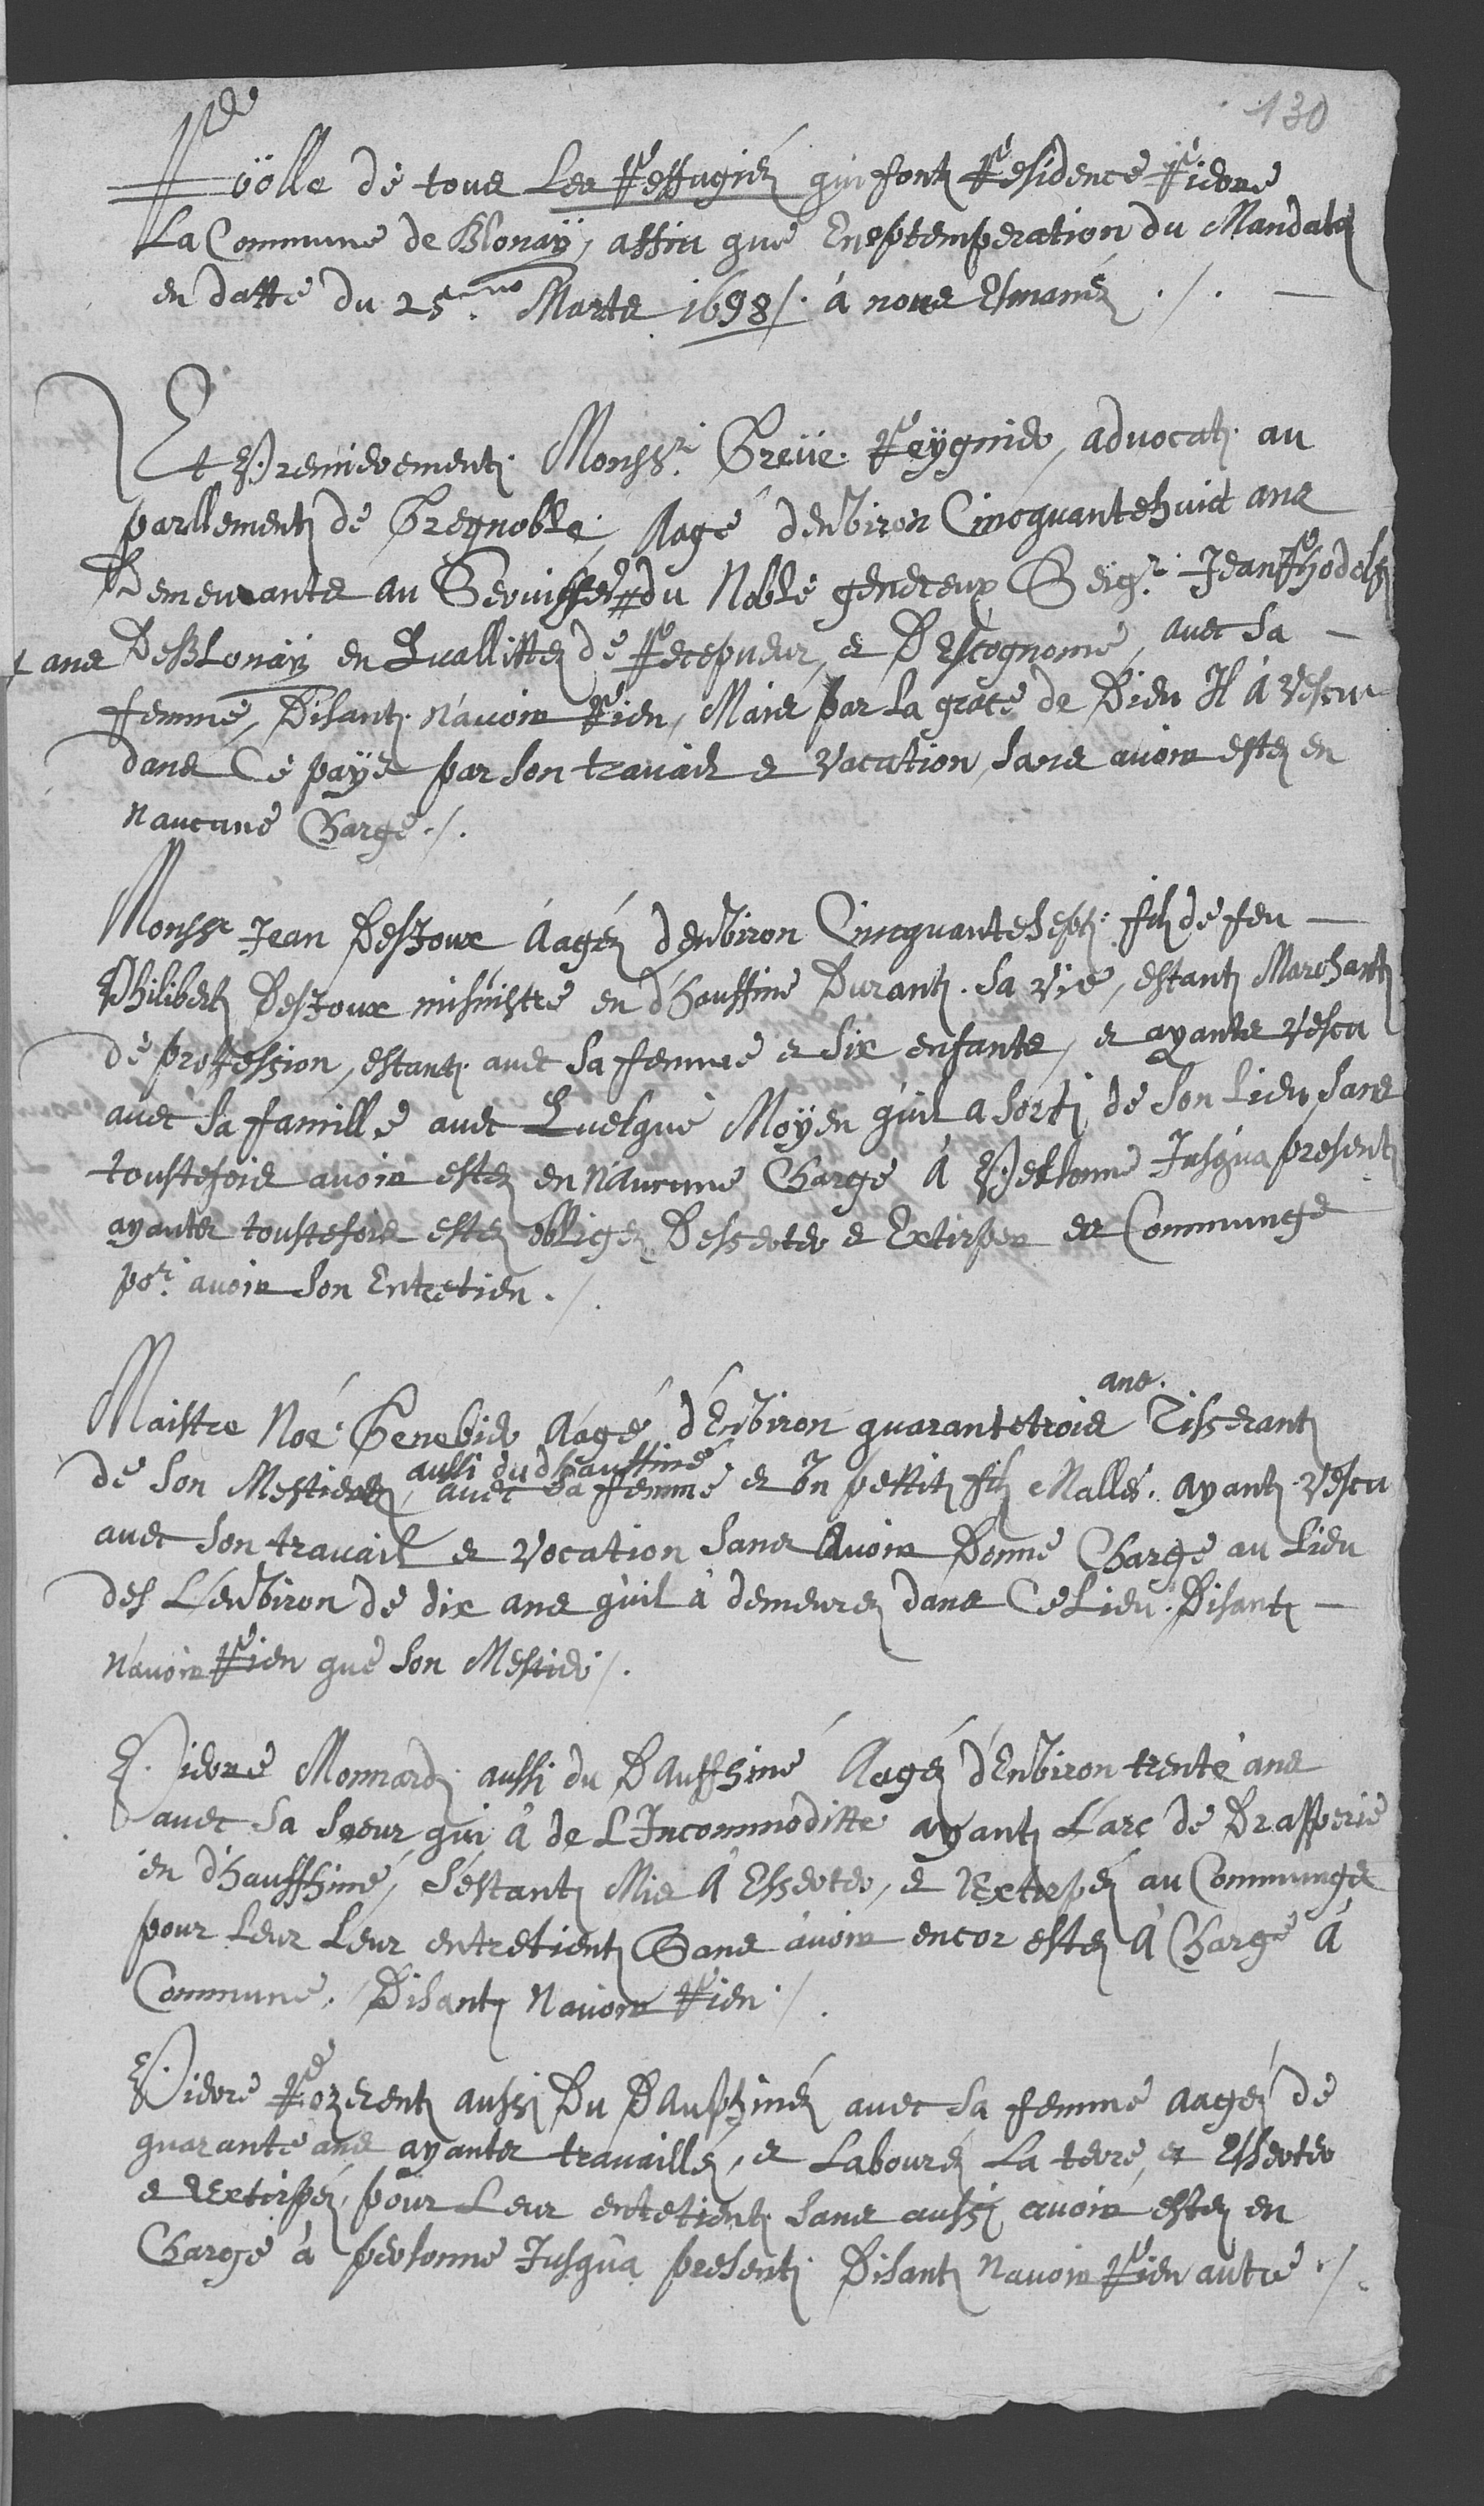 130
Rölle de tous Les Reffugiéz qui font Residence Riere
La Commune de Blonaÿ, affin que En eptemperation du Mandats
en datte du 25.no Marts 1698 /. à nous Esmanéz ./. —
Et Premierement. Monssr. Greüe. Reÿgnier, advocat. au
parllement de Gregnoble, Aagé denviron Cincquantehuict ans
Demeurants au Servisse # du Noble genereux Seigr. Jean Rhodolf
# ans DesBlonaÿ en Quallittez de Recepveur, et DEscognome, avec sa —
femme, Disant. n'avoir Rien, Mais par La grace de Dieu Il à Vescu
dans Ce paÿs par son travail et Vacation, sans avoir estez en
naucune Charge ./.
Monssr Jean DesJoux Aagéz denviron Cincquantesept. filz de feu —
Philibert DesJoux minnistre en d'hauffine Durant. sa vie, estant Marchant
de profession, estant. avec sa femme et six enfants, et ayants vescu
avec sa famille avec Quelque Moÿen quil a sorti de son Lieu, sans
toustefois avoir estez en n'aucune Charge à Personne Jusqua present
ayants toustefois estez obligez Desserter et Extirper es Communge
por. avoir son Entretien ./.
Maistre Noé. Genebier Aagé d'Environ quarantetrois ans. Tisserant
de son Mestierz, aussi du dhauffiné avec sa femme et un pettit filz Malle. ayant. vescu
avec son travail et vocation sans Avoir Donne Charge au Lieu
des L'environ de dix ans quil à demeurez dans Ce Lieu. Disant —
n'avoir Rien que son Mestier /.
Pierre Monnard aussi du DAuffhiné Aagéz d'Environ trente ans
avec sa soeur qui à de L'Incommoditte ayant L'arc de Drapperie
en d'hauffhiné, s'estant Mis à Esserter, et Extirpéz au Communge
pour Leur Leur entretient Sans avoir encor estez à Charge à
Commune. Disant Navoir Rien ./.
Pierre Rozerent aussi Du DAuphinéz avec sa femme aagéz de
quarante ans ayants travailléz, et Labouréz La terre, et Esserter
et Extirpéz, pour Leur entetient sans aussi avoir estez en
Charge à personne Jusqua present. Disant Navoir Rien autre ./.